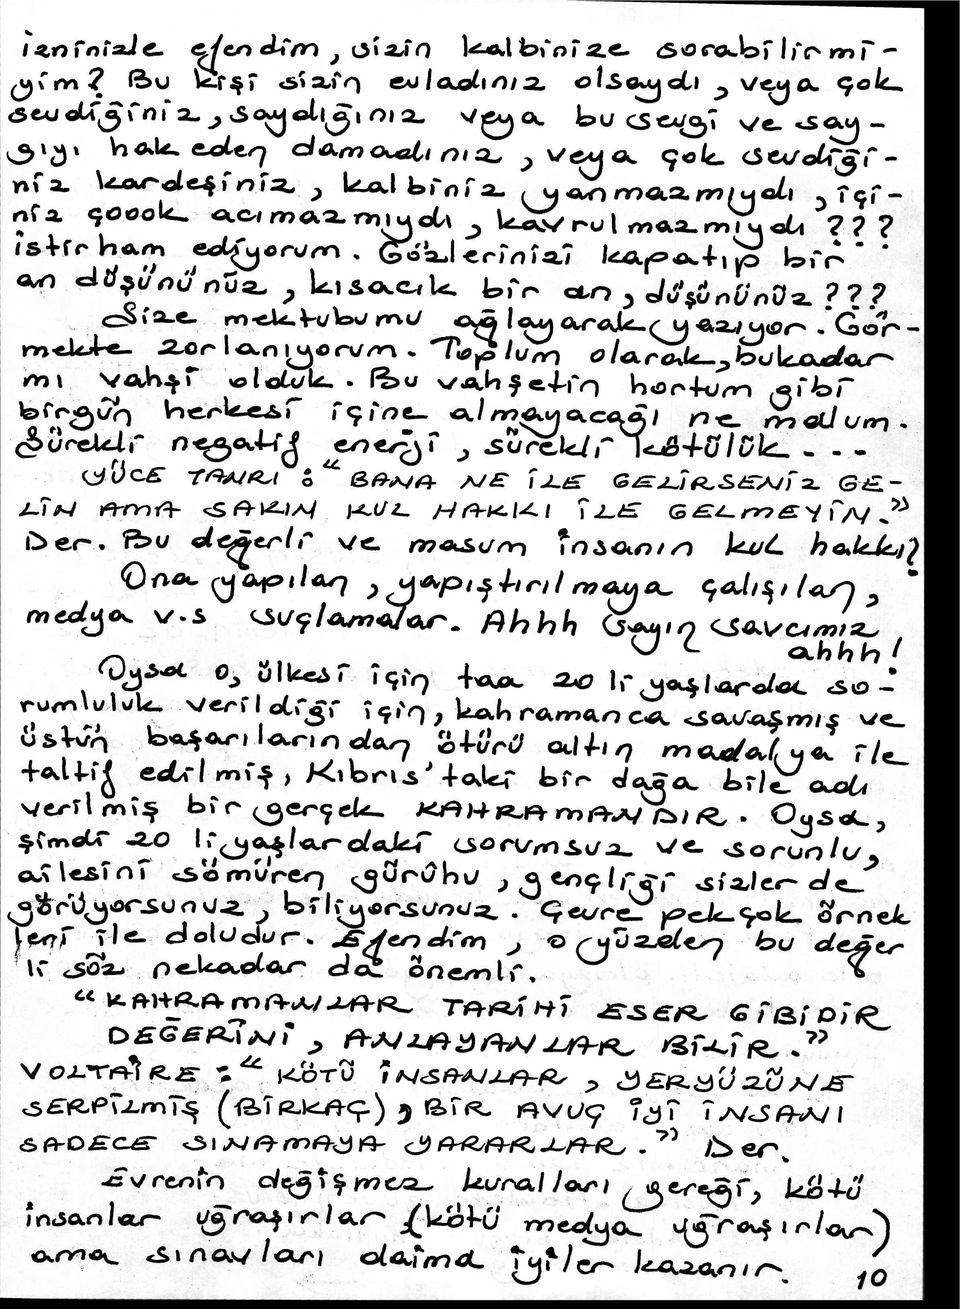 izninizle efendim, sizin kalbinize sorabilir mi-
yim? Bu kişi sizin evladınız olsaydı, veya çok
sevdiğiniz, saydığınız veya bu sevgi ve say-
gıyı hak eden damadınız, veya çok sevdiği-
niz kardeşiniz, kalbiniz yanmazmıydı, içi-
niz çoook acımazmıydı, kavrulmazmıydı ???
istirham ediyorum. Gözlerinizi kapatıp bir
an düşününüz, kısacık bir an, düşününüz???
Size mektubumu ağlayarak yazıyor. Gör-
mekte zorlanıyorum. Toplum olarak, bukadar
mı vahşi olduk. Bu vahşetin hortum gibi
birgün herkesi içine almayacağı ne malum.
Sürekli negatif enerji, sürekli kötülük...
YÜCE TANRI : "BANA NE İLE GELİRSENİZ GE-
LİN AMA SAKIN KUL HAKKI İLE GELMEYİN."
Der. Bu değerli ve masum insanın kul hakkı?
Ona yapılan, yapıştırılmaya çalışılan,
medya v.s suçlamalar. Ahhh Sayın Savcımız
ahhh!
Oysa o, ülkesi için taa 20 li yaşlarda so-
rumluluk verildiği için, kahramanca savaşmış ve
üstün başarılarından ötürü altın madalya ile
taltif edilmiş, Kıbrıs'taki bir dağa bile adı
verilmiş bir gerçek KAHRAMANDIR. Oysa,
şimdi 20 li yaşlardaki sorumsuz ve sorunlu,
ailesini sömüren gürûhu, gençliği sizler de
görüyorsunuz, biliyorsunuz. Çevre pek çok örnek
leri ile doludur. Efendim, o yüzden bu değer
li söz nekadar da önemli.
"KAHRAMANLAR TARİHİ ESER GİBİDİR
DEĞERİNİ, ANLAYANLAR BİLİR."
VOLTAİRE : "KÖTÜ İNSANLAR, YERYÜZÜNE
SERPİLMİŞ (BİRKAÇ), BİR AVUÇ İYİ İNSANI
SADECE SINAMAYA YARARLAR." Der.
Evrenin değişmez kuralları gereği, kötü
insanlar uğraşırlar (kötü medya uğraşırlar)
ama sınavları daima iyiler kazanır.
10